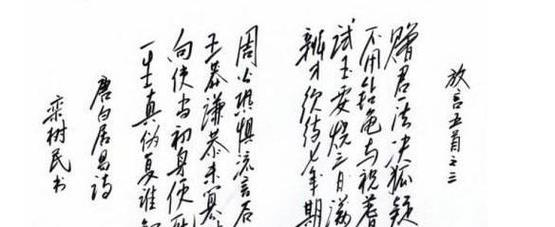 放言五首之三
赠君一法决狐疑
不用钻龟与祝蓍
试玉要烧三日满
辨才须待七年期
周公恐惧流言后
王莽谦恭未篡
向使当初身便死
一生真伪复谁
唐白居易诗
栾树民书